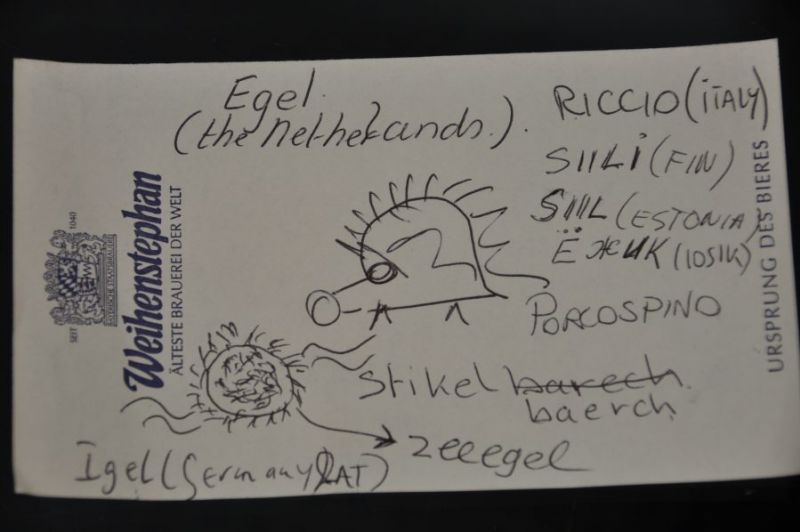 Egel
(the netherlands.).
RICCIO (ITALY)
SIILI (FIN)
SIIL (ESTONIA)
ËЖИК (IOSIK)
PORCOSPINO
Stikel barech
baerch
zeeegel
Igel (Germany & AT)
Weihenstephan
ÄLTESTE BRAUEREI DER WELT
SEIT 1040
URSPRUNG DES BIERES